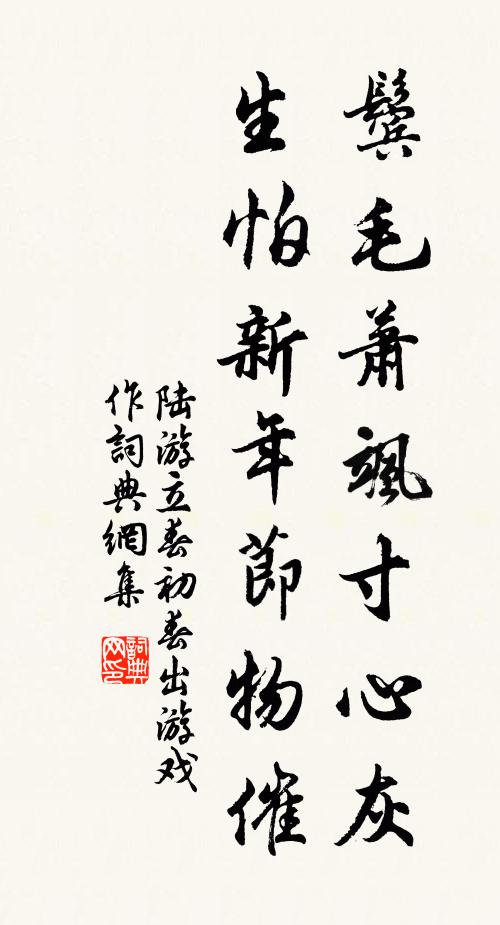 鬓毛萧飒寸心灰
生怕新年節物催
陆游立春初春出游戏
作詞典網集
詞典
网印